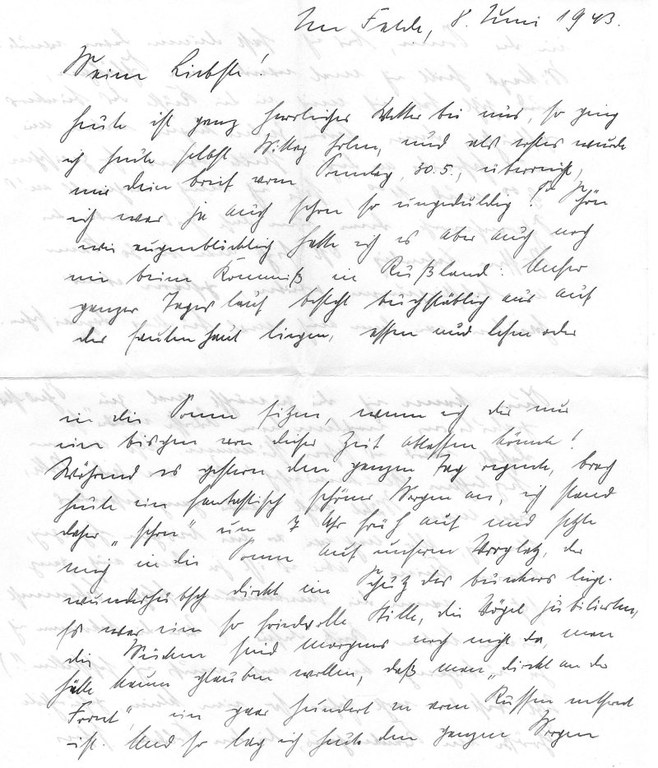 Im Felde, 8. Juni 1943.
Meine Liebste!
heute ist ganz herrliches Wetter bei uns, so ging
ich heute selbst Mittag holen, und als erstes wurde
mir dein Brief vom Sonntag, 30.5., überreicht,
ich war ja auch schon so ungeduldig! Schön
wie augenblicklich hatte ich es aber auch noch
nie beim Kommiß in Rußland. Unser
ganzer Tageslauf besteht buchstäblich aus auf
der faulen Haut liegen, essen und lesen oder
in der Sonne sitzen, wenn ich dir nur
ein bischen von dieser Zeit ablassen könnte!
Während es gestern den ganzen Tag regnete, brach
heute ein fantastisch schöner Morgen an, ich stand
daher „schon" um 7 Uhr früh auf und setzte
mich in die Sonne auf unseren Vorplatz, der
wunderhübsch direkt im Schutz des Bunkers liegt.
Es war eine so friedvolle Stille, die Vögel jubilierten,
die Mücken sind morgens noch nicht da, man
hätte kaum glauben wollen, daß man „direkt an der
Front", ein paar hundert m vom Russen entfernt
ist. Und so lag ich heute den ganzen Morgen